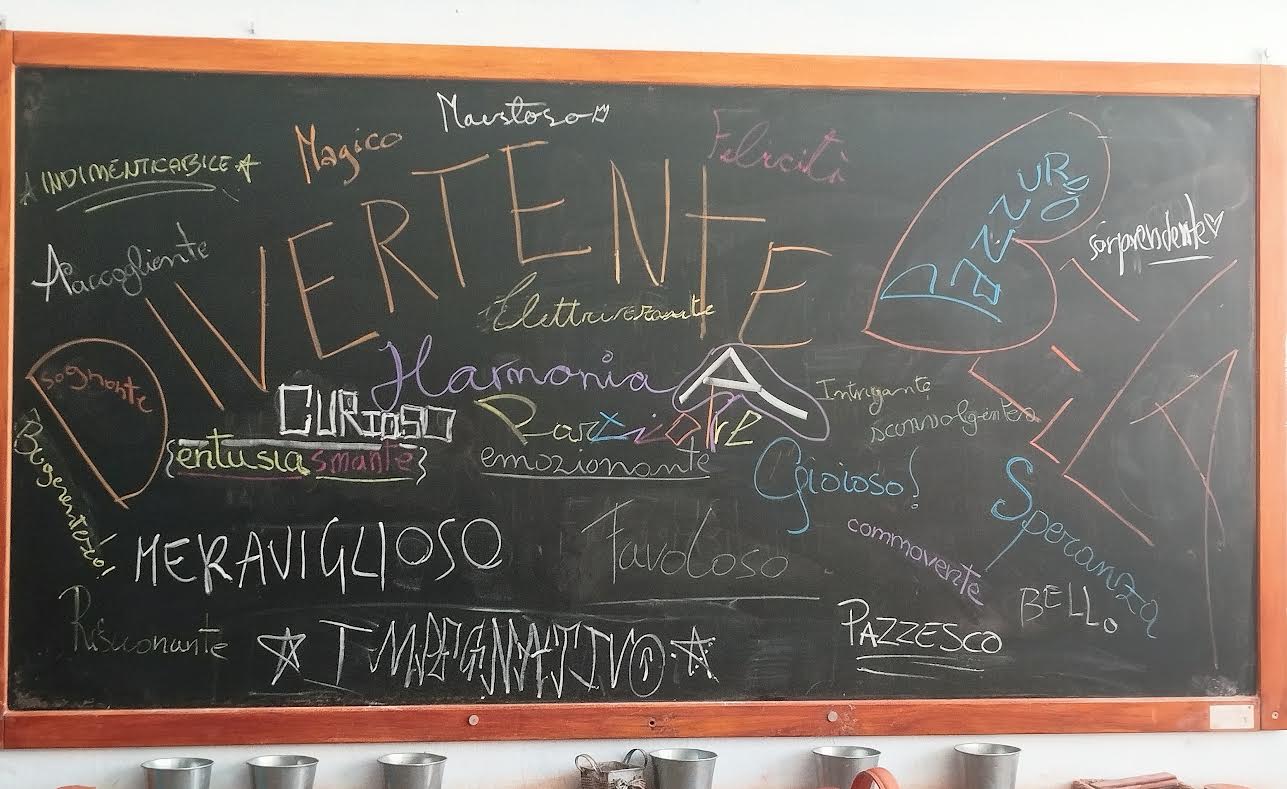 Maestoso
Magico
Felicità
INDIMENTICABILE
DIVERTENTE
AZZURRO
sorprendente
Aaccogliente
Elettrizzante
Harmonia
sognante
CURIOSO
Parziale
Intrigante
sconvolgente
{entusiasmante}
emozionante
Gioioso!
Speranza
MERAVIGLIOSO
Favoloso
commovente
BELLO
PAZZESCO